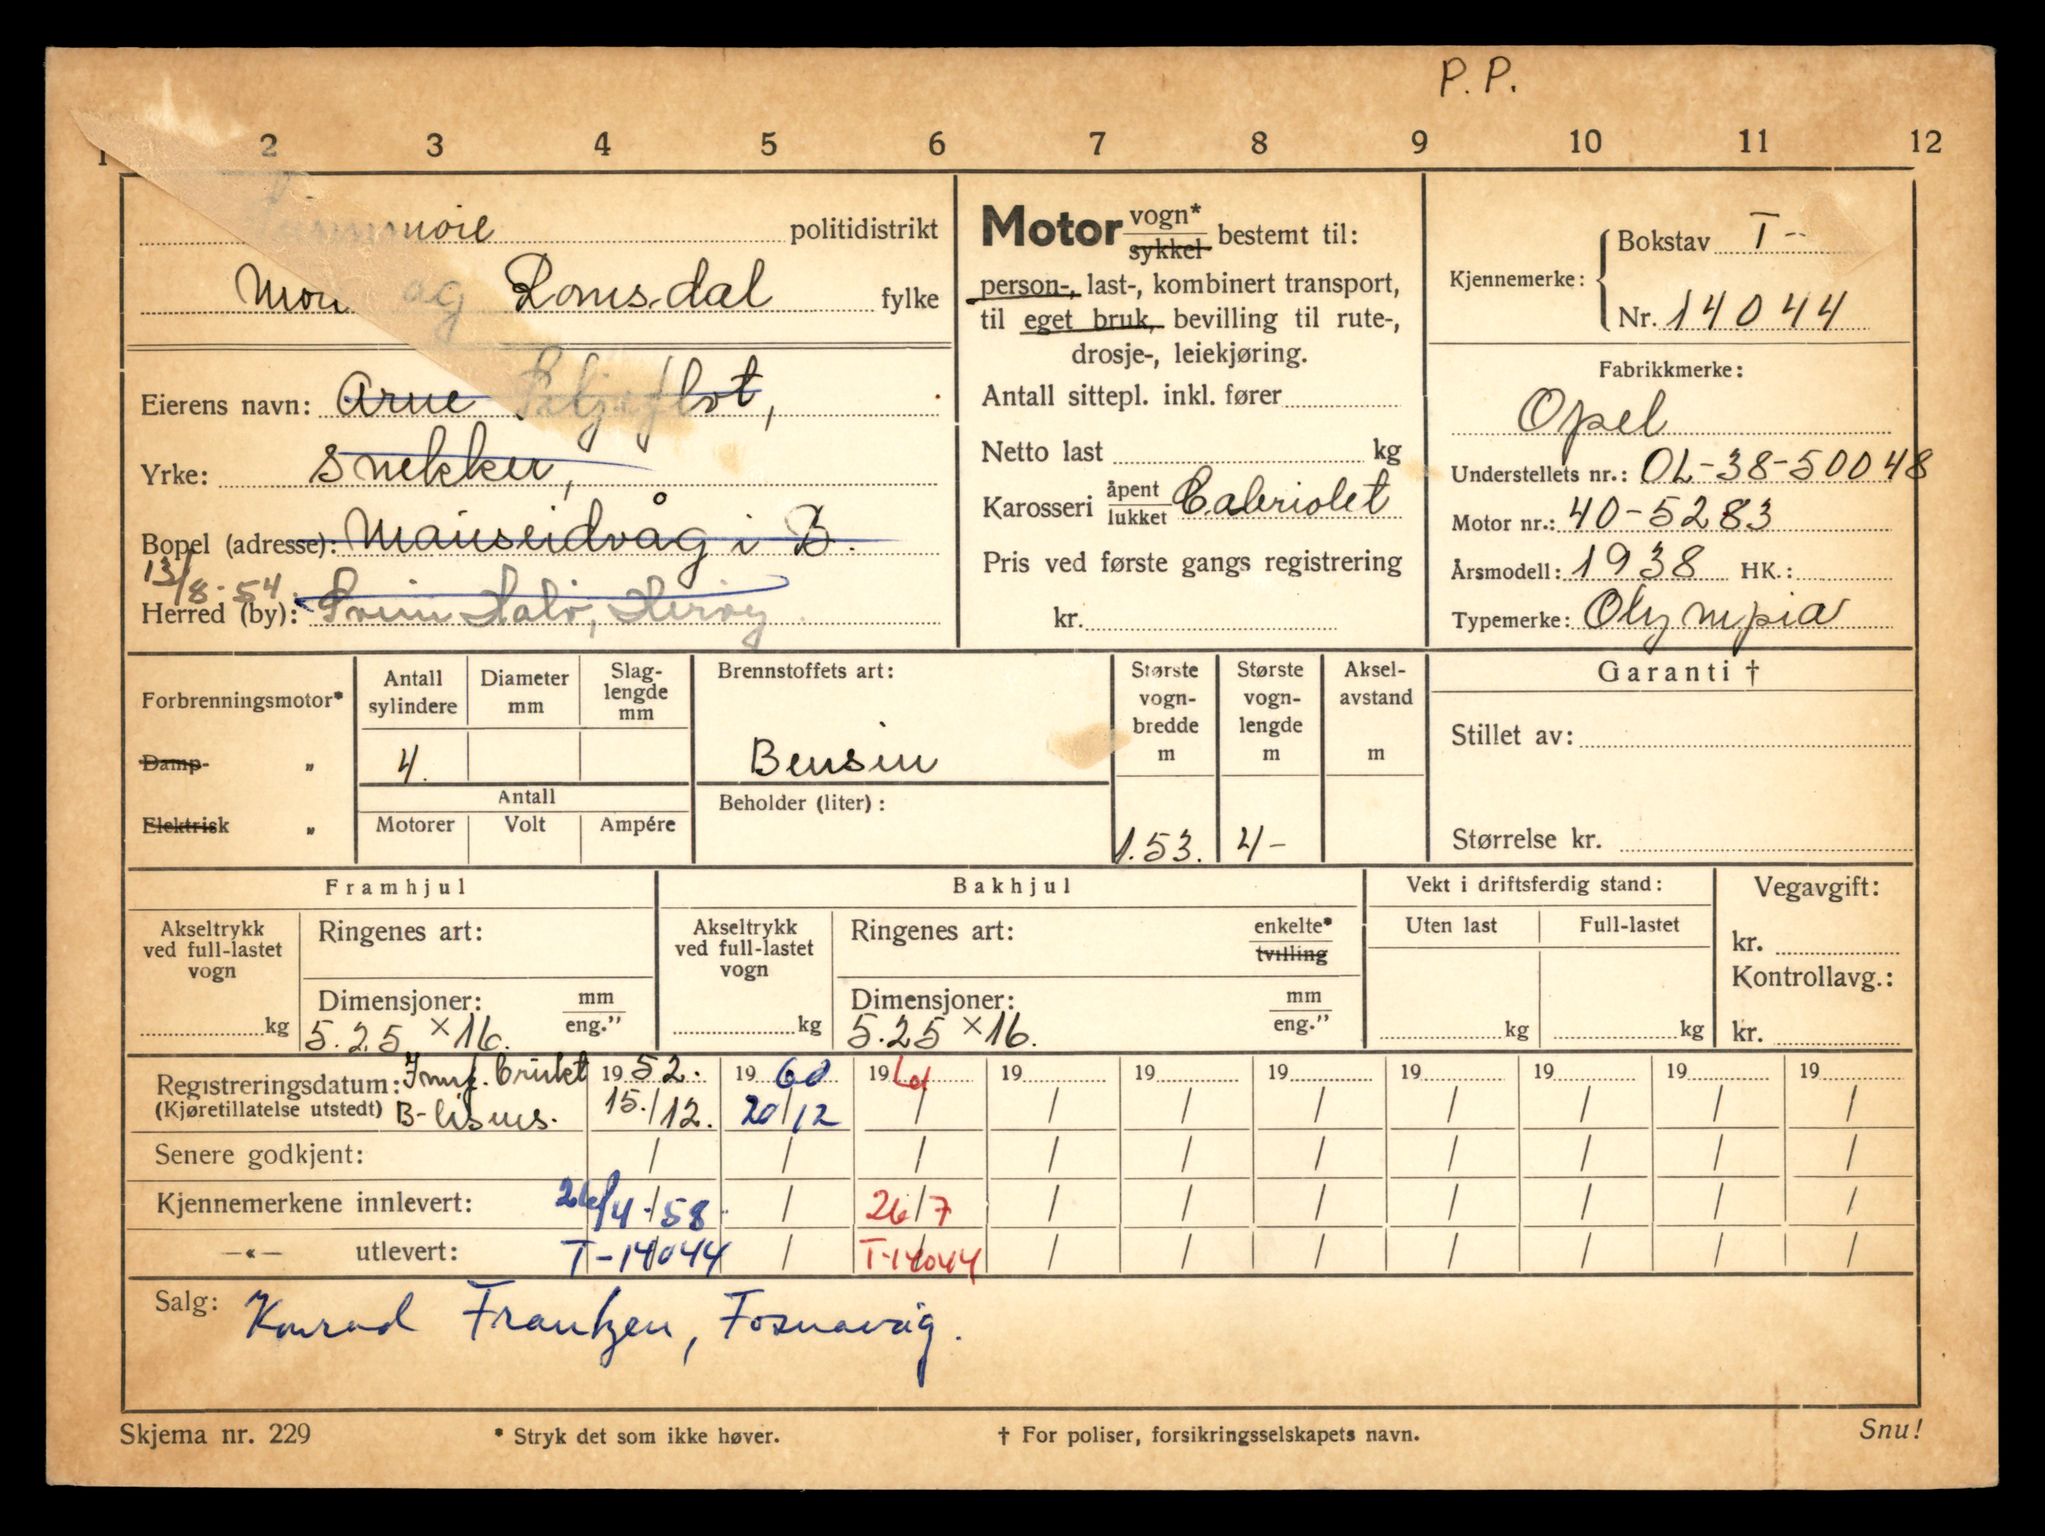 P. P.
1 2 3 4 5 6 7 8 9 10 11 12
politidistrikt
og Romsdal fylke
Eierens navn: Arne
Yrke: snekker,
Bopel (adresse): Mauseidvåg i B.
13/8-54
Herred (by): Svein
Motor vogn* sykkel bestemt til:
person-, last-, kombinert transport,
til eget bruk, bevilling til rute-,
drosje-, leiekjøring.
Antall sittepl. inkl. fører
Netto last kg
Karosseri åpent lukket Cabriolet
Pris ved første gangs registrering
kr.
Kjennemerke: Bokstav T-
Nr. 14044
Fabrikkmerke:
Opel
Understellets nr.: OL-38-50048
Motor nr.: 40-5283
Årsmodell: 1938 HK.:
Typemerke: Olympia
Forbrenningsmotor*
Damp- „
Elektrisk „
Antall sylindere
Diameter mm
Slag-lengde mm
4.
Antall
Motorer Volt Ampére
Brennstoffets art:
Bensin
Beholder (liter):
Største vogn-bredde m
1.53.
Største vogn-lengde m
4-
Aksel-avstand m
Garanti †
Stillet av:
Størrelse kr.
Framhjul
Akseltrykk ved full-lastet vogn
kg
Ringenes art:
Dimensjoner: mm eng."
5.25 x 16.
Bakhjul
Akseltrykk ved full-lastet vogn
kg
Ringenes art: enkelte* tvilling
Dimensjoner: mm eng."
5.25 x 16.
Vekt i driftsferdig stand:
Uten last Full-lastet
kg kg
Vegavgift:
kr.
Kontrollavg.:
kr.
Registreringsdatum: Imp. brukt 19 52. 19 60 19 61 19 19 19 19 19 19 19
(Kjøretillatelse utstedt) B-lisens. 15./12. 20/12 / / / / / / / /
Senere godkjent: / / / / / / / / / /
Kjennemerkene innlevert: 26/4-58 / 26/7 / / / / / / /
—«— utlevert: T-14044 / T-14044 / / / / / / /
Salg: Konrad Frantzen, Fosnavåg.
Skjema nr. 229
* Stryk det som ikke høver.
† For poliser, forsikringsselskapets navn.
Snu!